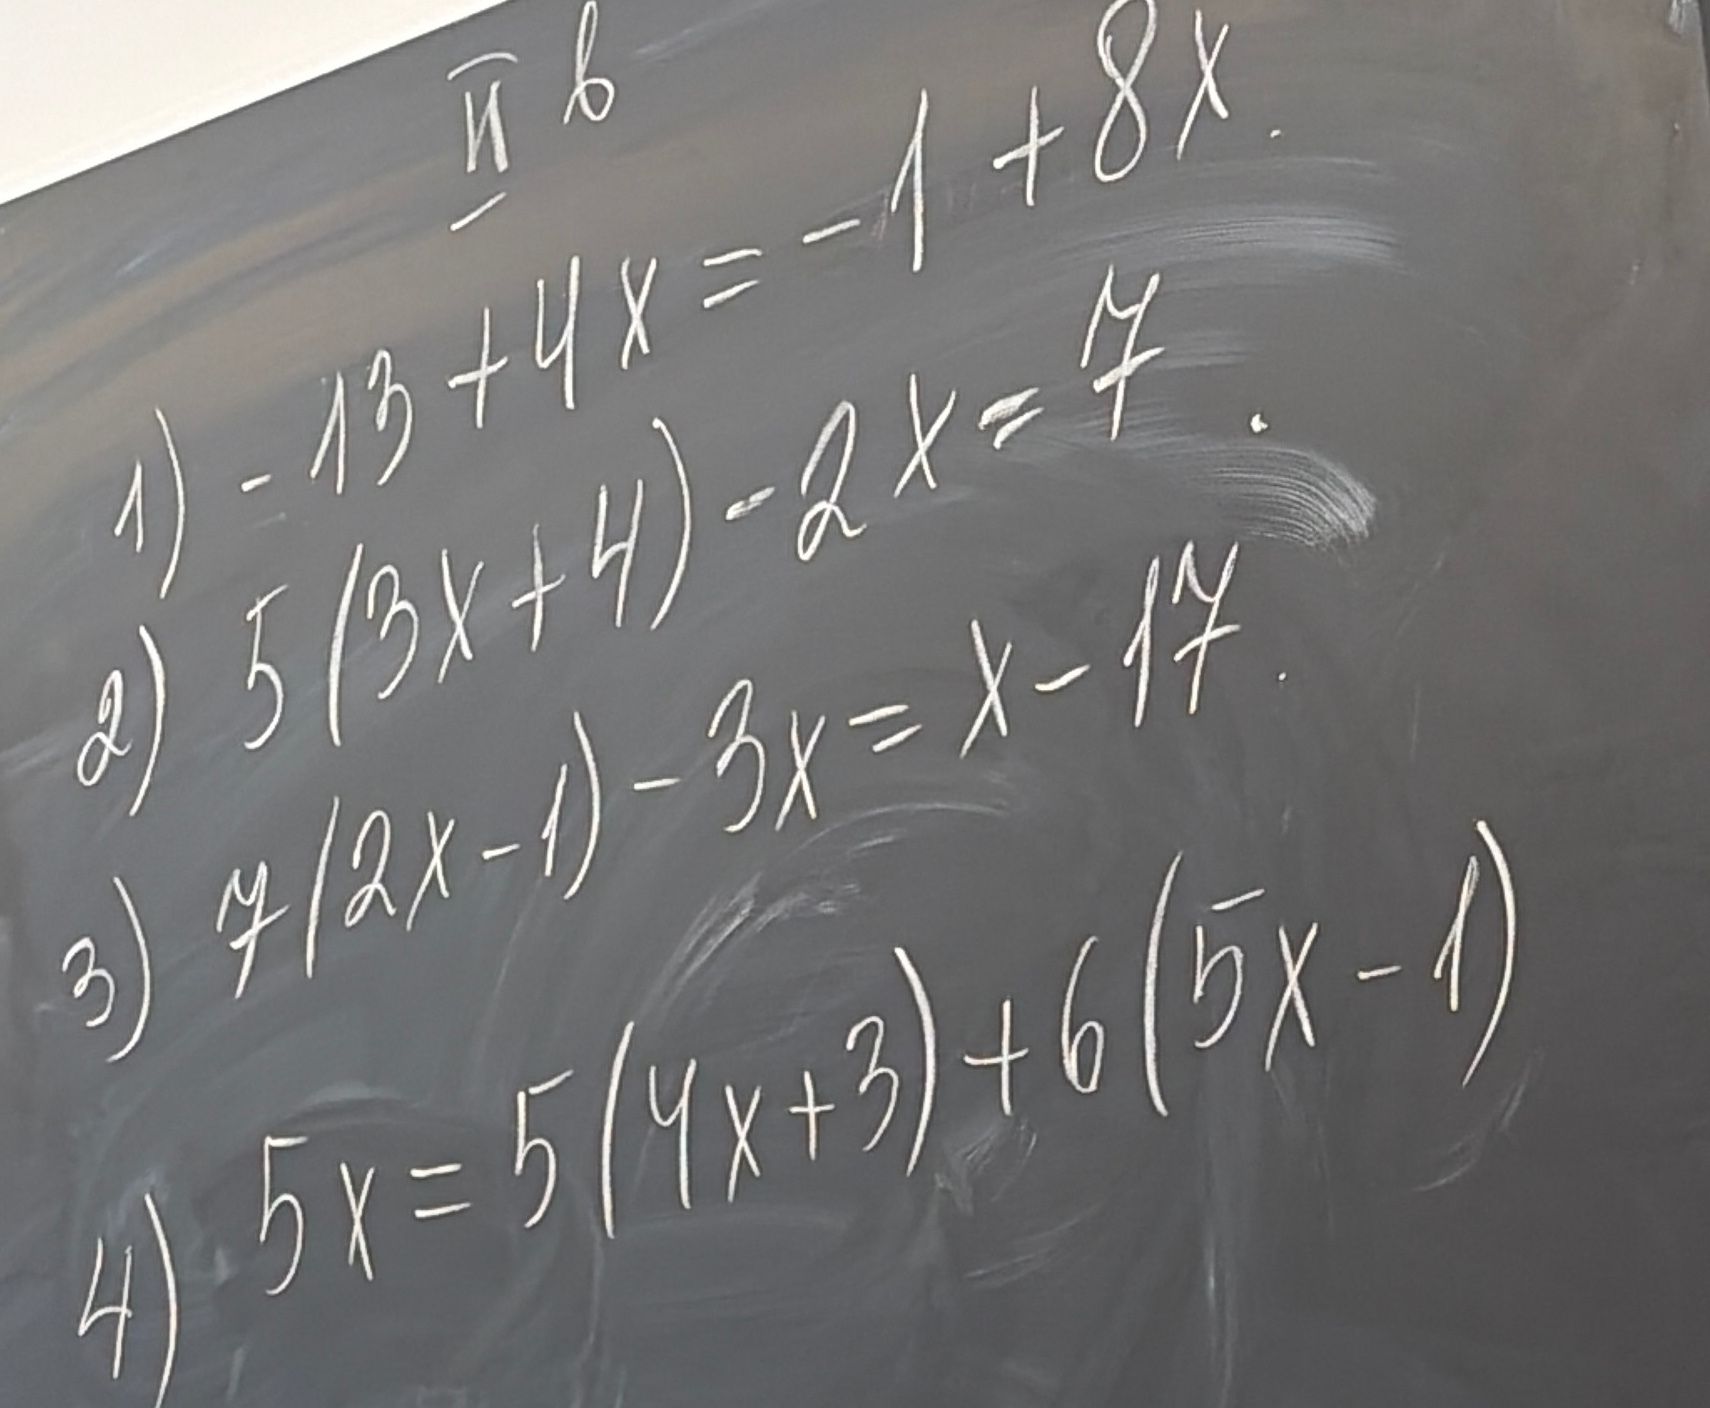 II в
1) -13+4x=-1+8x.
2) 5(3x+4)-2x=7.
3) 7(2x-1)-3x=x-17.
4) 5x=5(4x+3)+6(5x-1)